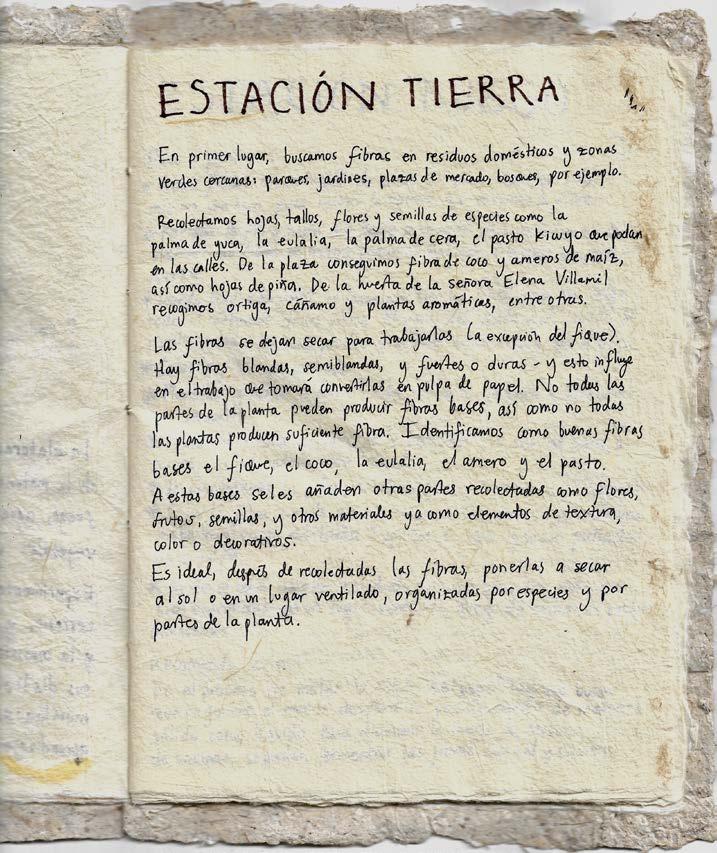 ESTACIÓN TIERRA
En primer lugar, buscamos fibras en residuos domésticos y zonas
verdes cercanas: parques, jardines, plazas de mercado, bosques, por ejemplo.
Recolectamos hojas, tallos, flores y semillas de especies como la
palma de yuca, la eulalia, la palma de cera, el pasto Kiwyo que podan
en las calles. De la plaza conseguimos fibra de coco y ameros de maíz,
así como hojas de piña. De la huerta de la señora Elena Villamil
recogimos ortiga, cáñamo y plantas aromáticas, entre otras.
Las fibras se dejan secar para trabajarlas (a excepción del fique).
Hay fibras blandas, semiblandas, y fuertes o duras - y esto influye
en el trabajo que tomará convertirlas en pulpa de papel. No todas las
partes de la planta pueden producir fibras bases, así como no todas
las plantas producen suficiente fibra. Identificamos como buenas fibras
bases el fique, el coco, la eulalia, el amero y el pasto.
A estas bases se les añaden otras partes recolectadas como flores,
frutos, semillas, y otros materiales ya como elementos de textura,
color o decorativos.
Es ideal, despés de recolectadas las fibras, ponerlas a secar
al sol o en un lugar ventilado, organizadas por especies y por
partes de la planta.